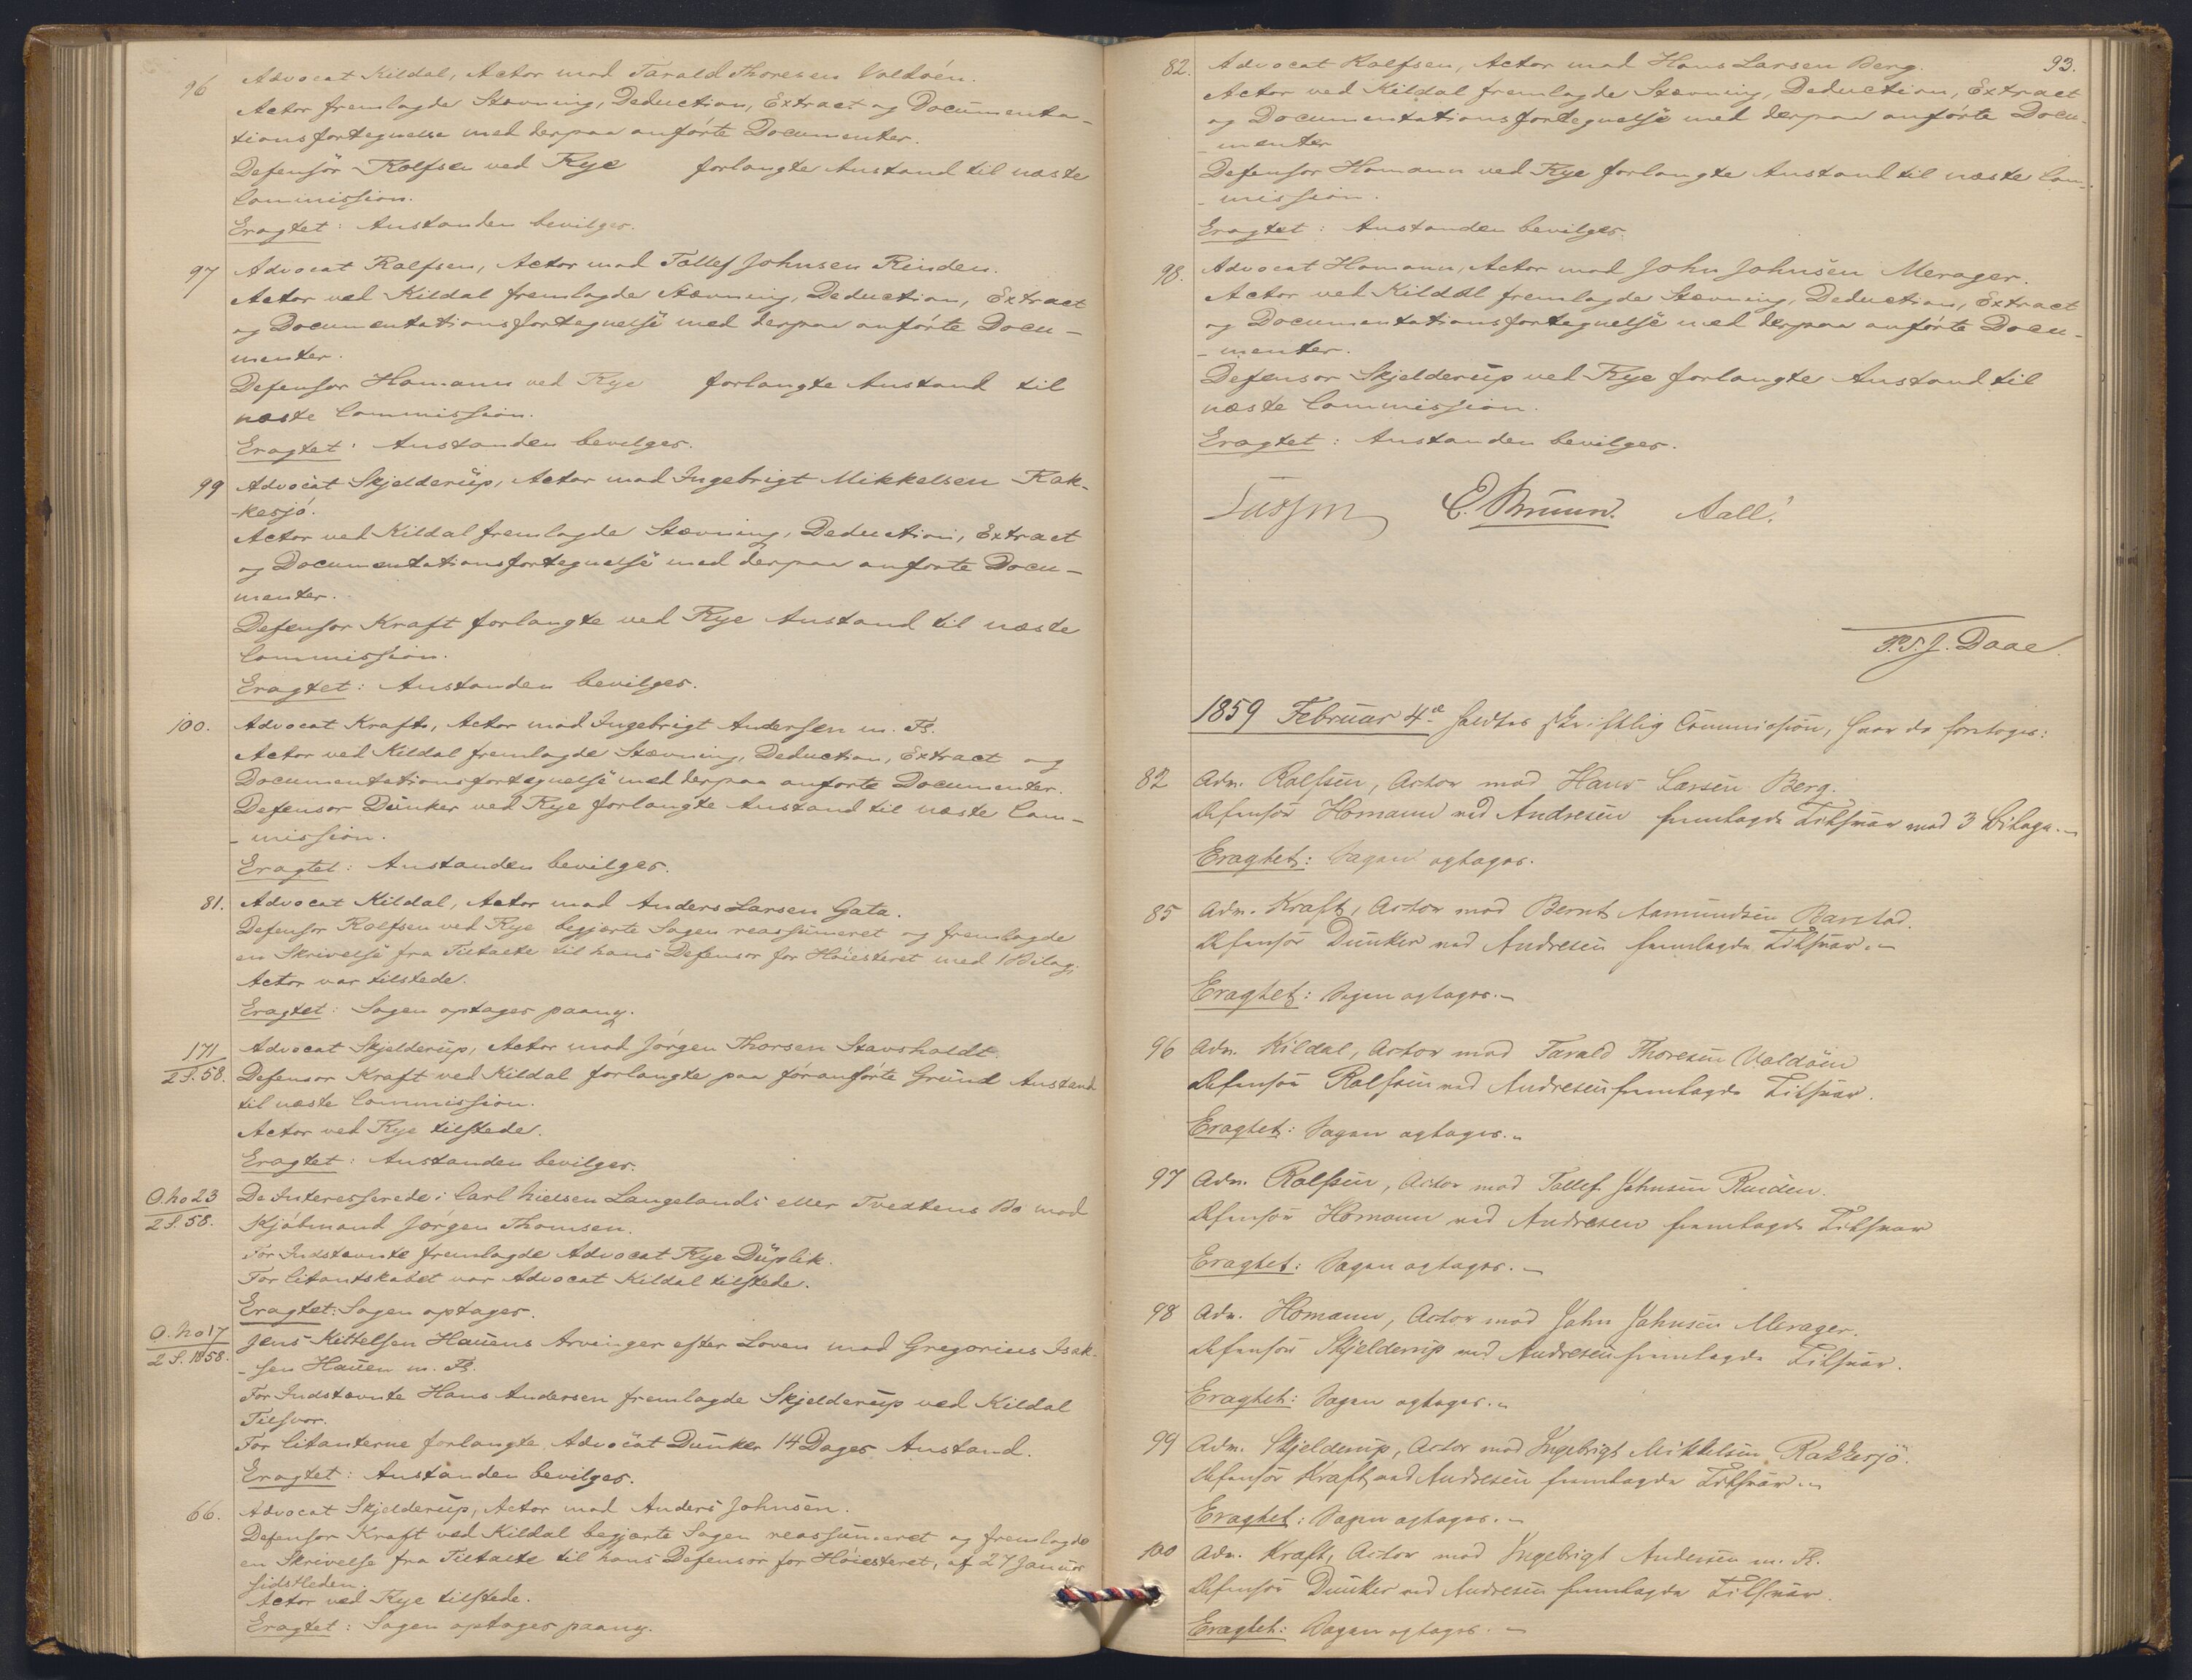 96 Advocat Kildal, Actor mod Tarald Thoresen Valdøen.
Actor fremlagde Stævning, Deduction, Extract og Documenta-
tionsfortegnelse med derpaa anførte Documenter.
Defensor Rolfsen ved Rye forlangte Anstand til næste
Commission.
Eragtet: Anstanden bevilges.
97 Advocat Rolfsen, Actor mod Tollef Johnsen Rinden.
Actor ved Kildal fremlagde Stævning, Deduction, Extract
og Documentationsfortegnelse med derpaa anførte Docu-
menter.
Defensor Homann ved Rye forlangte Anstand til
næste Commission.
Eragtet: Anstanden bevilges.
99 Advocat Skjelderup, Actor mod Ingebrigt Mikkelsen Rak-
-kesjø.
Actor ved Kildal fremlagde Stævning, Deduction, Extract
og Documentationsfortegnelse med derpaa anførte Docu-
menter.
Defensor Kraft forlangte ved Rye Anstand til næste
Commission.
Eragtet: Anstanden bevilges.
100. Advocat Kraft, Actor mod Ingebrigt Andersen m. Fl.
Actor ved Kildal fremlagde Stævning, Deduction, Extract og
Documentationsfortegnelse med derpaa anførte Documenter.
Defensor Dunker ved Rye forlangte Anstand til næste Com-
-mission.
Eragtet: Anstanden bevilges.
81. Advocat Kildal, Actor mod Anders Larsen Gata.
Defensor Rolfsen ved Rye begjærte Sagen reassumeret og fremlagde
en Skrivelse fra Tiltalte til hans Defensor for Høiesteret med 1 Bilag;
Actor var tilstede.
Eragtet: Sagen optages paany.
171/2 S. 58. Advocat Skjelderup, Actor mod Jørgen Thorsen Stavsholdt.
Defensor Kraft ved Kildal forlangte paa føranførte Grund Anstand
til næste Commission.
Actor ved Rye tilstede.
Eragtet: Anstanden bevilges.
O. No 23 De Interesserede i Carl Nielsen Langelands eller Tvedtens Bo mod
2 S. 58. Kjøbmand Jørgen Thomsen.
For Indstevnte fremlagde Advocat Rye Duplik.
For Citantskabet var Advocat Kildal tilstede.
Eragtet: Sagen optages.
O. No 17
2 S. 1858. Jens Kittelsen Hauens Arvinger efter Loven mod Gregorius Isak-
-sen Hauen m. Fl.
For Indstævnte Hans Andersen fremlagde Skjelderup ved Kildal
Tilsvar.
For Citanterne forlangte Advocat Dunker 14 Dages Anstand.
Eragtet: Anstanden bevilges.
66. Advocat Skjelderup, Actor mod Anders Johnsen.
Defensor Kraft ved Kildal begjærte Sagen reassumeret og fremlagde
en Skrivelse fra Tiltalte til hans Defensor for Høiesteret, af 27 Januar
sidstleden.
Actor ved Rye tilstede.
Eragtet: Sagen optages paany.
93.
82. Advocat Rolfsen, Actor mod Hans Larsen Berg.
Actor ved Kildal fremlagde Stævning, Deduction, Extract
og Documentationsfortegnelse med derpaa anførte Docu-
-menter
Defensor Homann ved Rye forlangte Anstand til næste Com-
-mission.
Eragtet: Anstanden bevilges.
98. Advocat Homann, Actor mod John Johnsen Merager.
Actor ved Kildal fremlagde Stævning, Deduction, Extract
og Documentationsfortegnelse med derpaa anførte Docu-
-menter.
Defensor Skjelderup ved Rye forlangte Anstand til
næste Commission.
Eragtet: Anstanden bevilges.
E. Bruun. Aall.
Daae
1859 Februar 4de holdtes skriftlig Commission, hvor da foretoges:
82 Adv. Rolfsen, Actor mod Hans Larsen Berg.
Defensor Homann ved Andresen fremlagde Tilsvar med 3 Bilage.
Eragtet: Sagen optages.
85 Adv. Kraft, Actor mod Bernt Aamundsen Barstad.
Defensor Dunker ved Andresen fremlagde Tilsvar.
Eragtet: Sagen optages.
96 Adv. Kildal, Actor mod Tarald Thoresen Valdøen
Defensor Rolfsen ved Andresen fremlagde Tilsvar.
Eragtet: Sagen optages.
97 Adv. Rolfsen, Actor mod Tollef Johnsen Rinden.
Defensor Homann ved Andresen fremlagde Tilsvar
Eragtet: Sagen optages.
98 Adv. Homann, Actor mod John Johnsen Merager.
Defensor Skjelderup ved Andresen fremlagde Tilsvar.
Eragtet: Sagen optages.
99 Adv. Skjelderup, Actor mod Ingebrigt Mikkelsen Rakkesjø.
Defensor Kraft ved Andresen fremlagde Tilsvar.
Eragtet: Sagen optages.
100 Adv. Kraft, Actor mod Ingebrigt Andersen m. Fl.
Defensor Dunker ved Andresen fremlagde Tilsvar.
Eragtet: Sagen optages.